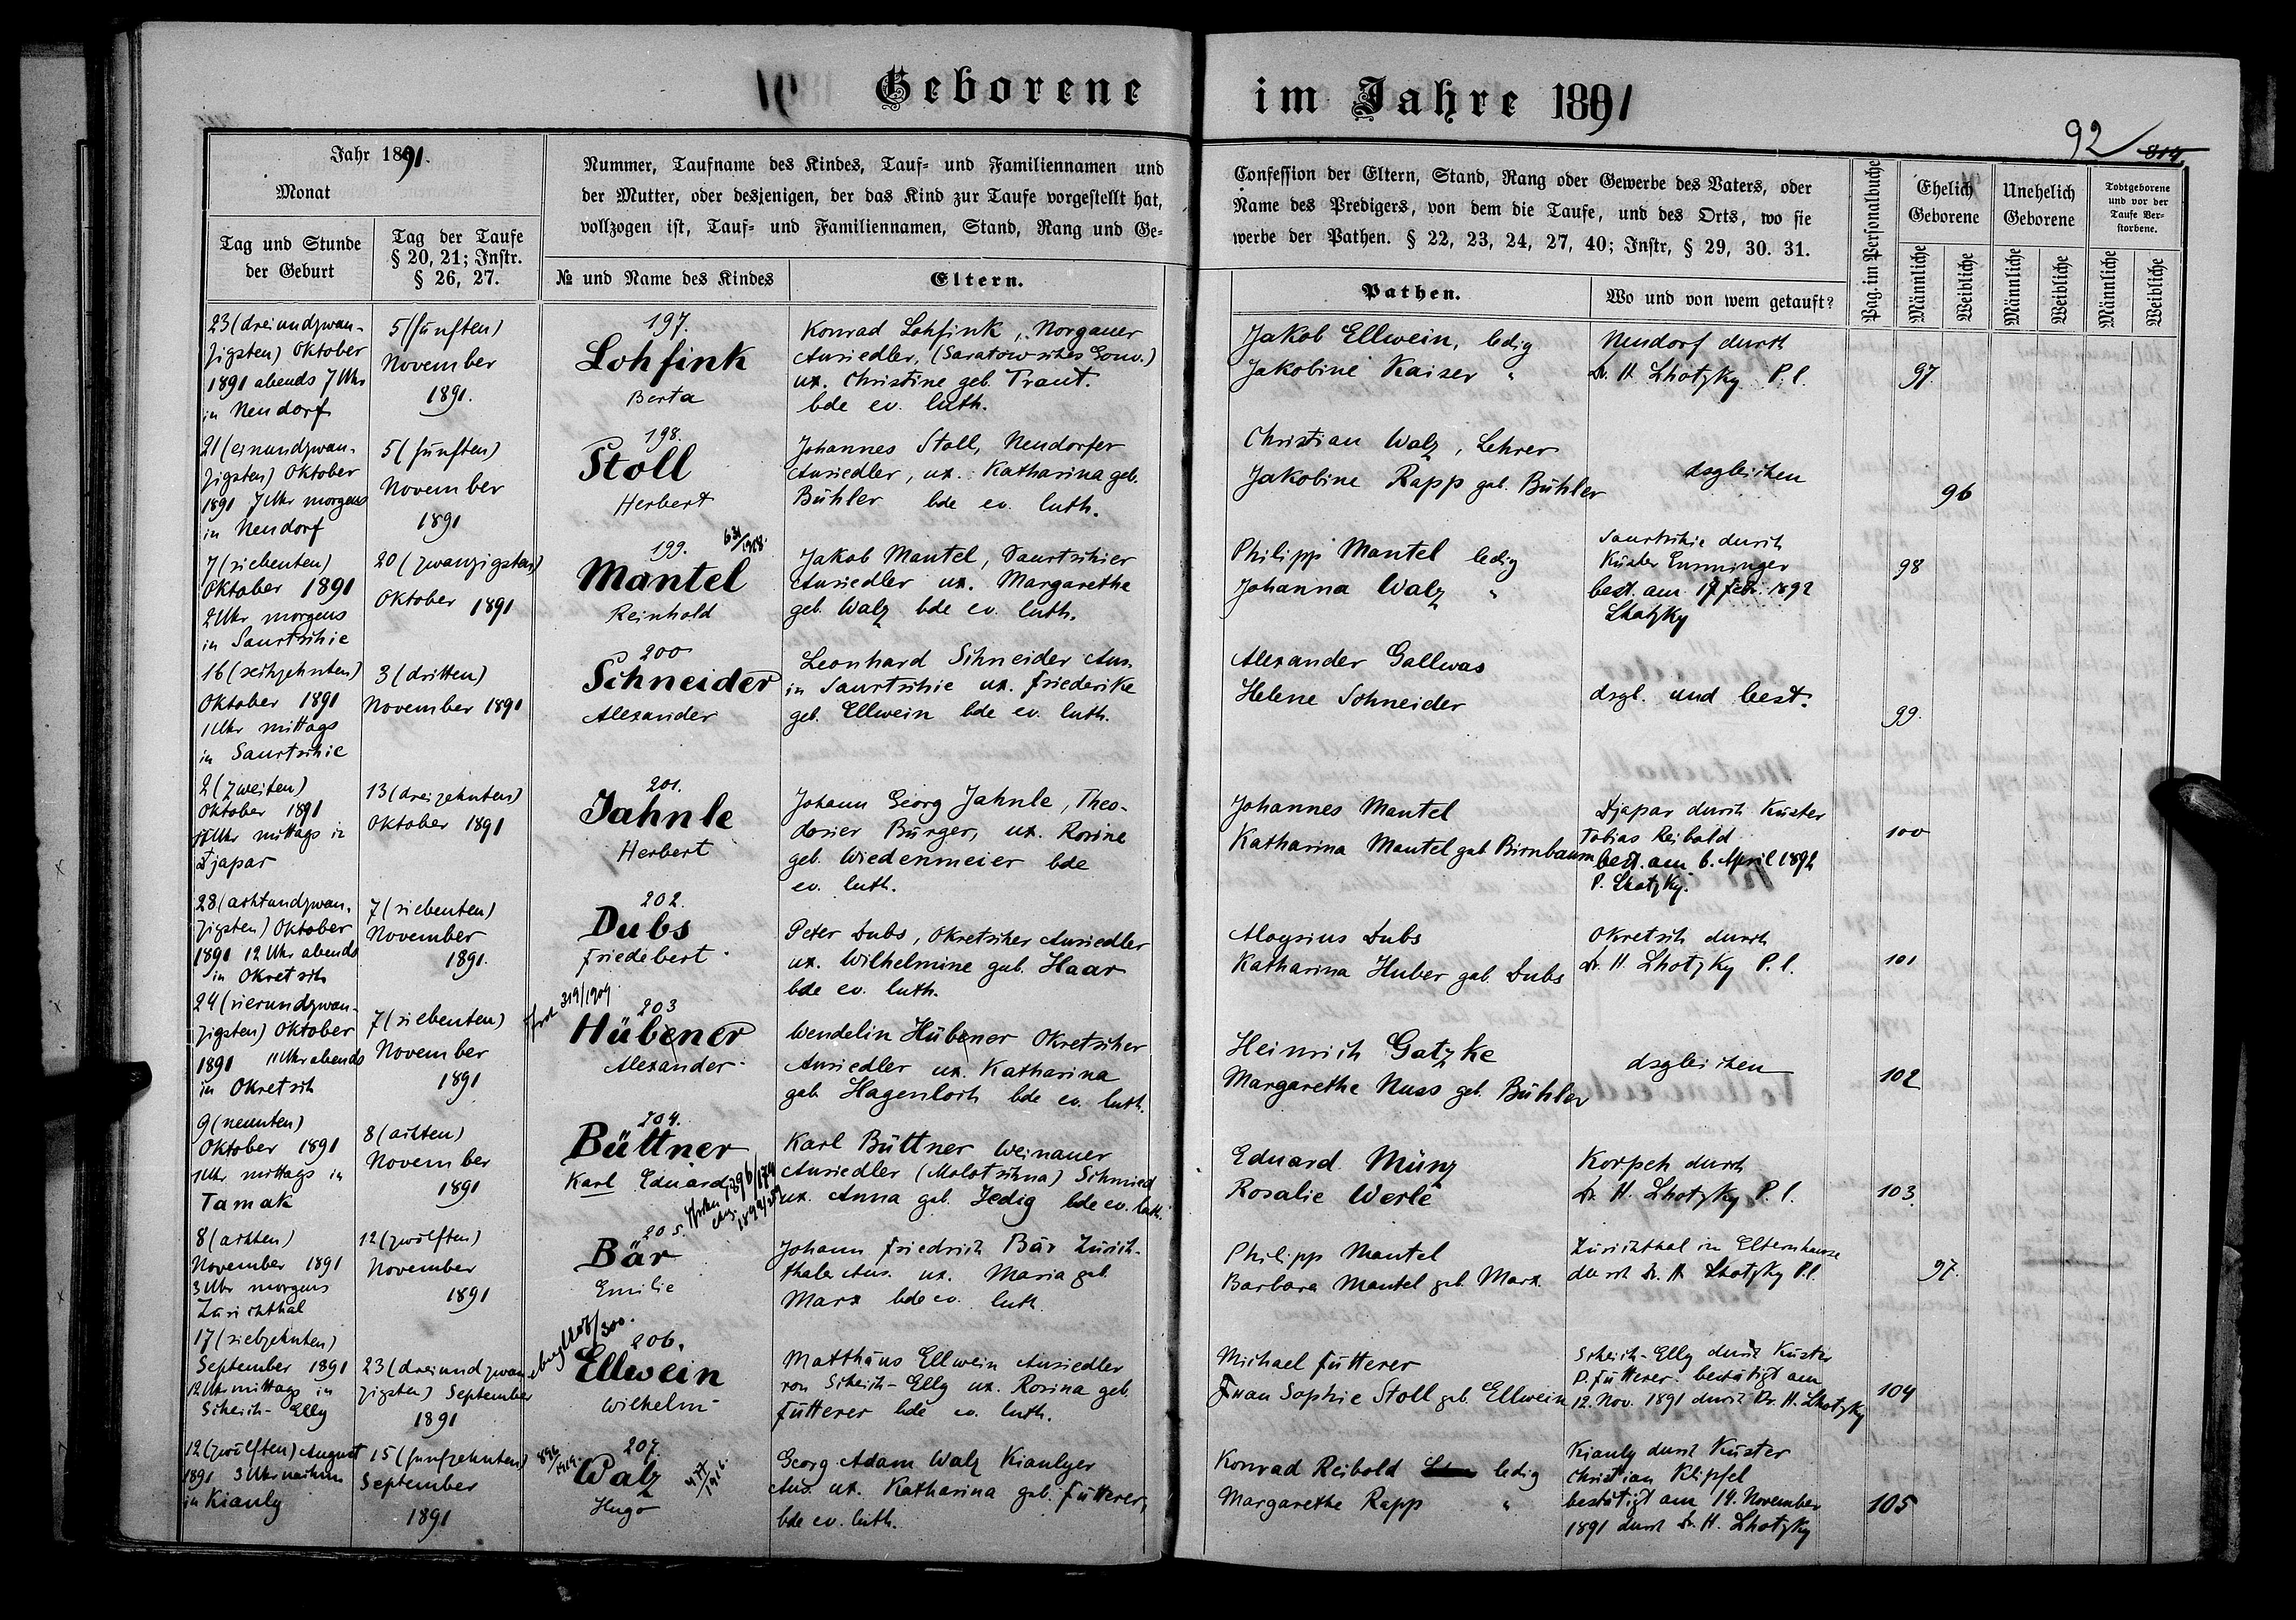 Geborene im Jahre 1891
92 814.
Jahr 1891.
Monat
Tag und Stunde
der Geburt
Tag der Taufe
§ 20, 21; Instr.
§ 26, 27.
Nummer, Taufname des Kindes, Tauf- und Familiennamen und
der Mutter, oder desjenigen, der das Kind zur Taufe vorgestellt hat,
vollzogen ist, Tauf- und Familiennamen, Stand, Rang und Ge-
№ und Name des Kindes
Eltern.
Confession der Eltern, Stand, Rang oder Gewerbe des Vaters, oder
Name des Predigers, von dem die Taufe, und des Orts, wo sie
werbe der Pathen. § 22, 23, 24, 27, 40; Instr, § 29, 30. 31.
Pathen.
Wo und von wem getauft?
Pag. im Personalbuche
Ehelich
Geborene
Unehelich
Geborene
Todtgeborene
und vor der
Taufe Ver-
storbene.
Männliche
Weibliche
Männliche
Weibliche
Männliche
Weibliche
23 (dreiundzwan-
zigsten) Oktober
1891 abends 7 Uhr
in Neudorf
5 (fünften)
November
1891.
197.
Lohfink
Berta
Konrad Lohfink, Norgauer
Ansiedler, (Saratowsches Gouv.)
ux. Christine geb. Traut.
bde ev. luth.
Jakob Ellwein, ledig
Jakobine Kaiser "
Neudorf durch
Dr. H. Lhotzky P. l.
97
21 (einundzwan-
zigsten) Oktober
1891 7 Uhr morgens
in Neudorf
5 (fünften)
November
1891
198.
Stoll
Herbert
Johannes Stoll, Neudorfer
Ansiedler, ux. Katharina geb.
Bühler bde ev. luth.
Christian Walz, Lehrer
Jakobine Rapp geb. Bühler
dsgleichen
96
7 (siebenten)
Oktober 1891
2 Uhr morgens
in Saurtschie
20 (zwanzigsten)
Oktober 1891
199.
Mantel
Reinhold
Jakob Mantel, Saurtschier
Ansiedler ux. Margarethe
geb. Walz bde ev. luth.
Philipp Mantel ledig
Johanna Walz "
Saurtschie durch
Küster Enminger
best. am 17 Febr. 1892
Lhotzky
98
16 (sechzehnten)
Oktober 1891
1 Uhr mittags
in Saurtschie
3 (dritten)
November 1891
200
Schneider
Alexander
Leonhard Schneider Ans.
in Saurtschie ux. Friederike
geb. Ellwein bde ev. luth.
Alexander Gallwas
Helene Schneider
dsgl. und best.
99.
2 (zweiten)
Oktober 1891
Uhr mittags in
Djapar
13 (dreizehnten)
Oktober 1891
201.
Jahnle
Herbert
Johann Georg Jahnle, Theo-
dosier Bürger, ux. Rosine
geb. Wiedenmeier bde
ev. luth.
Johannes Mantel
Katharina Mantel geb Birnbaum
Djapar durch Küster
Tobias Reibold
best. am 6. April 1892
P. Lhotzky.
100
28 (achtundzwan-
zigsten) Oktober
1891 12 Uhr abends
in Okretsch
7 (siebenten)
November
1891.
202.
Dubs
Friedebert
Peter Dubs, Okretscher Ansiedler
ux. Wilhelmine geb. Haar
bde ev. luth.
Aloysius Dubs
Katharina Huber geb. Dubs
Okretsch durch
Dr. H. Lhotzky P. l.
101
24 (vierundzwan-
zigsten) Oktober
1891 11 Uhr abends
in Okretsch
7 (siebenten)
November
1891
319/1909
203
Hübener
Alexander
Wendelin Hübener Okretscher
Ansiedler ux. Katharina
geb. Hagenloch bde ev. luth.
Heinrich Gatzke
Margarethe Nuss geb. Bühler
dsgleichen
102
9 (neunten)
Oktober 1891
1 Uhr mittags in
Tamak
8 (achten)
November
1891
204.
Büttner
Karl Eduard
Karl Büttner Weinauer
Ansiedler (Molotschna) Schmied
ux. Anna geb. Jedig bde ev. luth.
Eduard Münz
Rosalie Werle
Korpeh durch
Dr. H. Lhotzky P. l.
103
8 (achten)
November 1891
3 Uhr morgens
Zürichthal
12 (zwölften)
November
1891
205.
Bär
Emilie
Johann Friedrich Bär Zürich-
thaler Ans. ux. Maria geb.
Marx bde ev. luth.
Philipp Mantel
Barbara Mantel geb. Marx
Zürichthal im Elternhause
durch Dr. H. Lhotzky P.l.
97.
17 (siebzehnten)
September 1891
12 Uhr mittags in
Scheich-Elly
23 (dreiundzwan-
zigsten) September
1891
206.
Ellwein
Wilhelm
Matthäus Ellwein Ansiedler
von Scheich-Elly ux. Rosina geb.
Fütterer bde ev. luth.
Michael Fütterer
Frau Sophie Stoll geb. Ellwein
Scheich-Elly durch Küster
P. Fütterer. bestätigt am
12. Nov. 1891 durch Dr. H. Lhotzky
104
12 (zwölften) August
1891 3 Uhr nachm
in Kianly
15 (fünfzehnten)
September
1891
207.
Walz
Hugo
Georg Adam Walz Kianlyer
Ans. ux. Katharina geb. Fütterer,
bde ev. luth.
Konrad Reibold ledig
Margarethe Rapp "
Kianly durch Küster
Christian Klipfel
bestätigt am 14. November
1891 durch Dr. H. Lhotzky
105